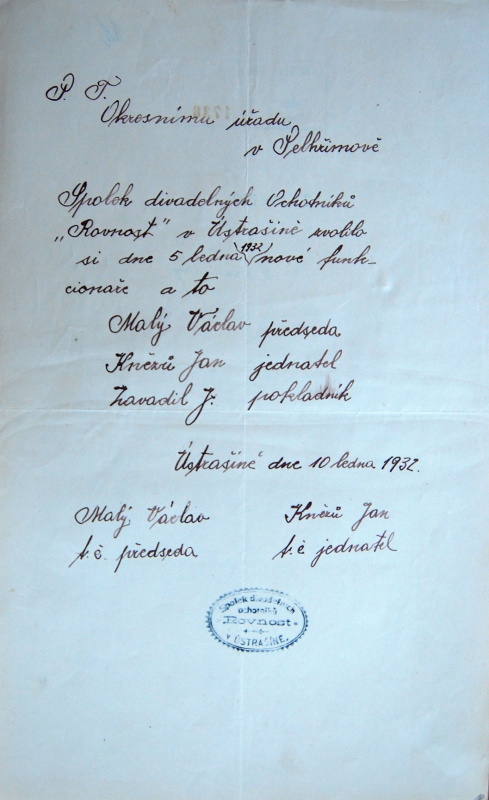 P. T.
Okresnímu úřadu
v Pelhřimově
Spolek divadelných Ochotníků
„Rovnost" v Ústrašíně zvolilo
si dne 5 ledna 1932 nové funk-
cionaře a to
Malý Václav předseda
Kněžů Jan jednatel
Zavadil J. pokladník
Ústrašíně dne 10 ledna 1932.
Malý Václav Kněžů Jan
t. č. předseda t. č. jednatel
Spolek divadelních
ochotníků
„Rovnost"
V ÚSTRAŠÍNE.